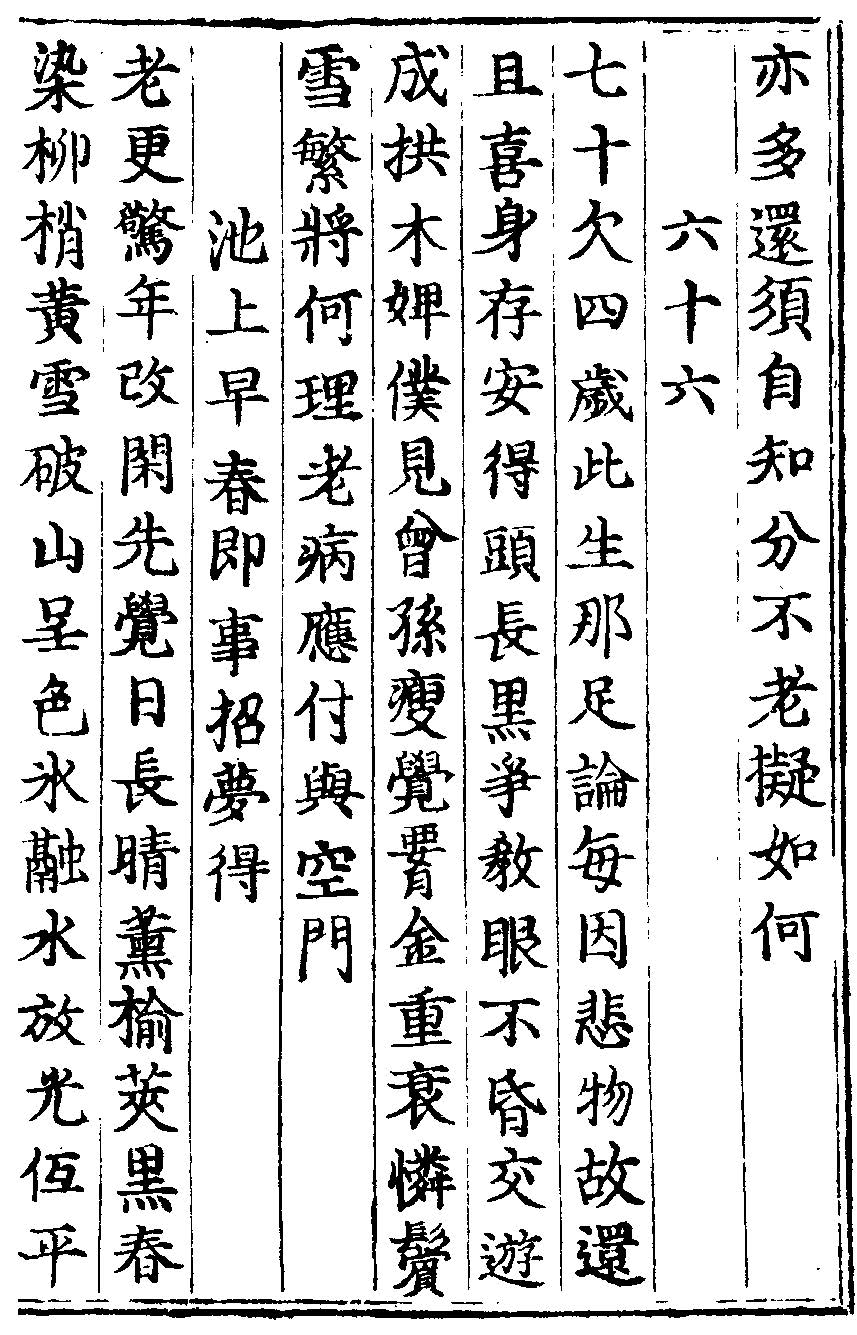 亦多還須自知分不老擬如何
六十六
七十欠四歲此生那足論每因悲物故還
且喜身存安得頭長黑爭教眼不昏交遊
成拱木婢僕見曾孫瘦覺䙅金重衰憐鬢
雪繁將何理老病應付與空門
池上早春即事招夢得
老更驚年改閑先覺日長晴薰榆莢黑春
染柳梢黃雪破山呈色氷融水放光低平